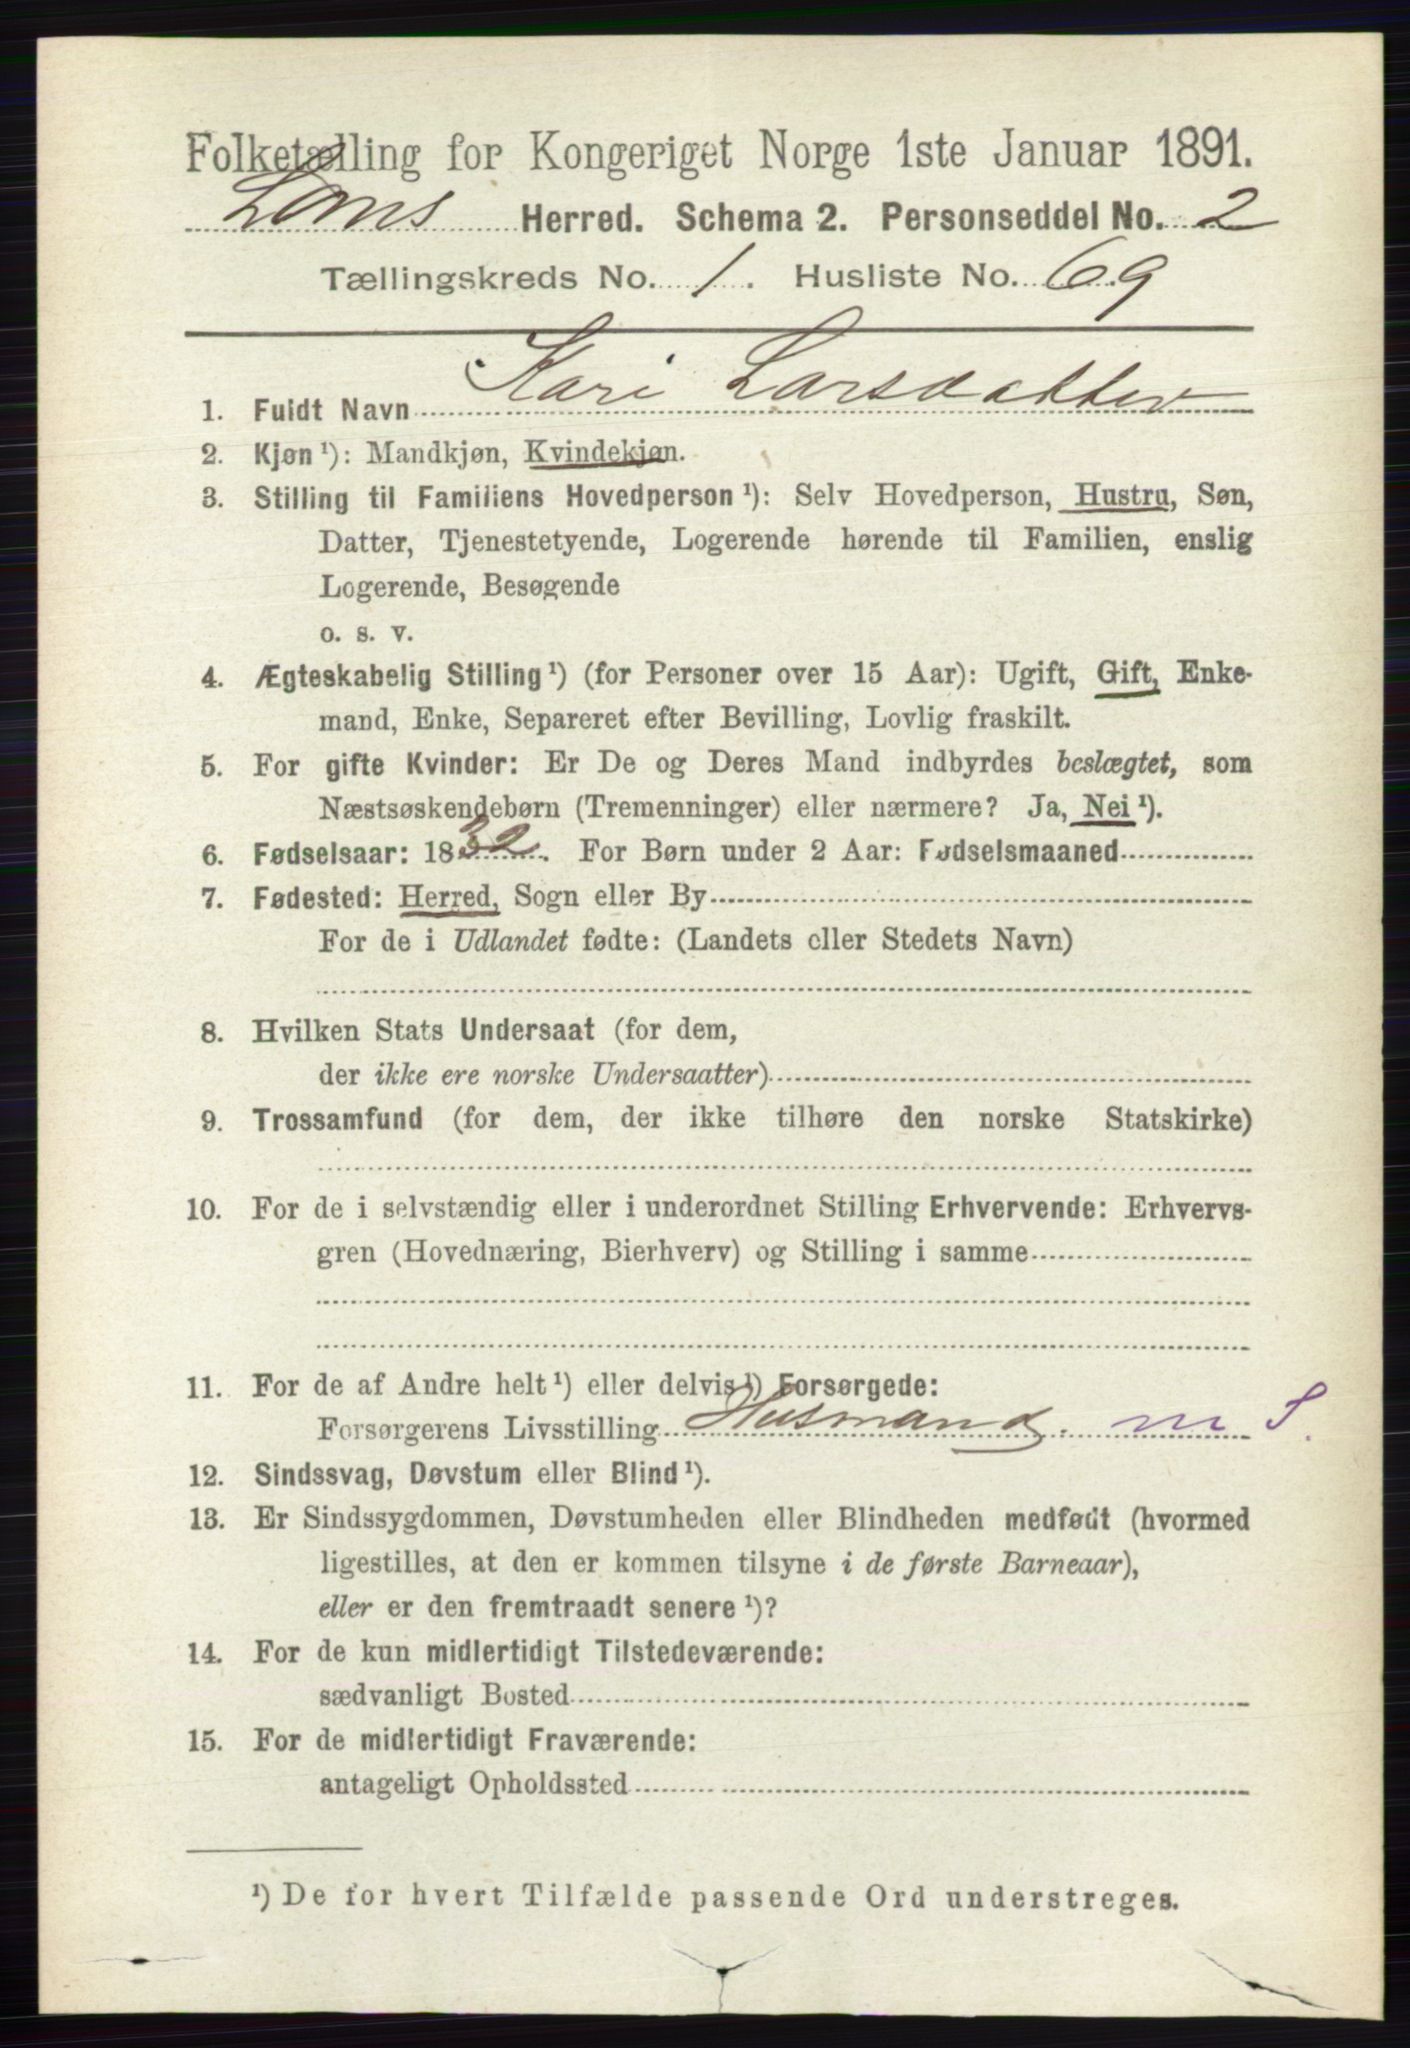 Folketælling for Kongeriget Norge 1ste Januar 1891.
Loms Herred. Schema 2. Personseddel No. 2
Tællingskreds No. 1. Husliste No. 69
1. Fuldt Navn Kari Larsdatter
2. Kjøn ¹): Mandkjøn, Kvindekjøn.
3. Stilling til Familiens Hovedperson ¹): Selv Hovedperson, Hustru, Søn,
Datter, Tjenestetyende, Logerende hørende til Familien, enslig
Logerende, Besøgende
o. s. v.
4. Ægteskabelig Stilling ¹) (for Personer over 15 Aar): Ugift, Gift, Enke-
mand, Enke, Separeret efter Bevilling, Lovlig fraskilt.
5. For gifte Kvinder: Er De og Deres Mand indbyrdes beslægtet, som
Næstsøskendebørn (Tremenninger) eller nærmere? Ja, Nei ¹).
6. Fødselsaar: 1832. For Børn under 2 Aar: Fødselsmaaned
7. Fødested: Herred, Sogn eller By
For de i Udlandet fødte: (Landets eller Stedets Navn)
8. Hvilken Stats Undersaat (for dem,
der ikke ere norske Undersaatter)
9. Trossamfund (for dem, der ikke tilhøre den norske Statskirke)
10. For de i selvstændig eller i underordnet Stilling Erhvervende: Erhvervs-
gren (Hovednæring, Bierhverv) og Stilling i samme
11. For de af Andre helt ¹) eller delvis ¹) Forsørgede:
Forsørgerens Livsstilling Husmand. m S.
12. Sindssvag, Døvstum eller Blind ¹).
13. Er Sindssygdommen, Døvstumheden eller Blindheden medfødt (hvormed
ligestilles, at den er kommen tilsyne i de første Barneaar),
eller er den fremtraadt senere ¹)?
14. For de kun midlertidigt Tilstedeværende:
sædvanligt Bosted
15. For de midlertidigt Fraværende:
antageligt Opholdssted
¹) De for hvert Tilfælde passende Ord understreges.